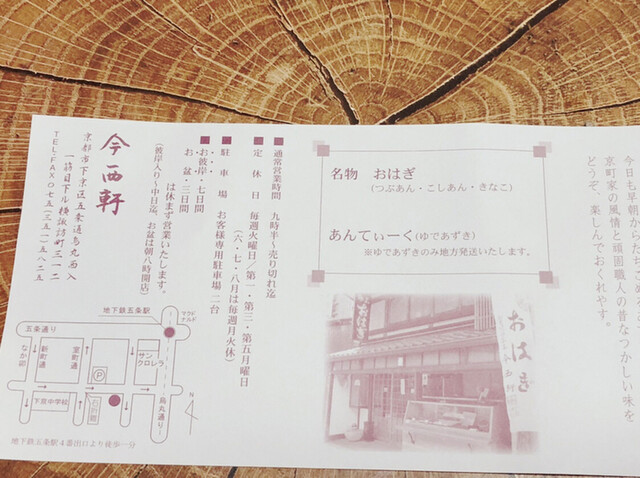 今日も早朝から
京町家の風情と頑固職人の昔なつかしい味を
どうぞ、楽しんでおくれやす。
名物 おはぎ
(つぶあん・こしあん・きなこ)
あんてぃーく(ゆであずき)
※ゆであずきのみ地方発送いたします。
おはぎ
■通常営業時間 九時半〜売り切れ迄
■定休日 毎週火曜日/第一・第三・第五月曜日
(六・七・八月は毎週月火休)
■駐車場 お客様専用駐車場 二台
■お彼岸・七日間
■お盆・三日間
は休まず営業いたします。
(彼岸入り〜中日迄、お盆は朝八時開店)
今西軒
京都市下京区五条通烏丸西入
一筋目下ル横諏訪町三一二
TEL・FAX〇七五(三五一)五八二五
地下鉄五条駅
マクド
ナルド
五条通り
なか卯
新町通
室町通
サン
クロレラ
P
下京中学校
お的場
烏丸通り
N
地下鉄五条駅4番出口より徒歩一分